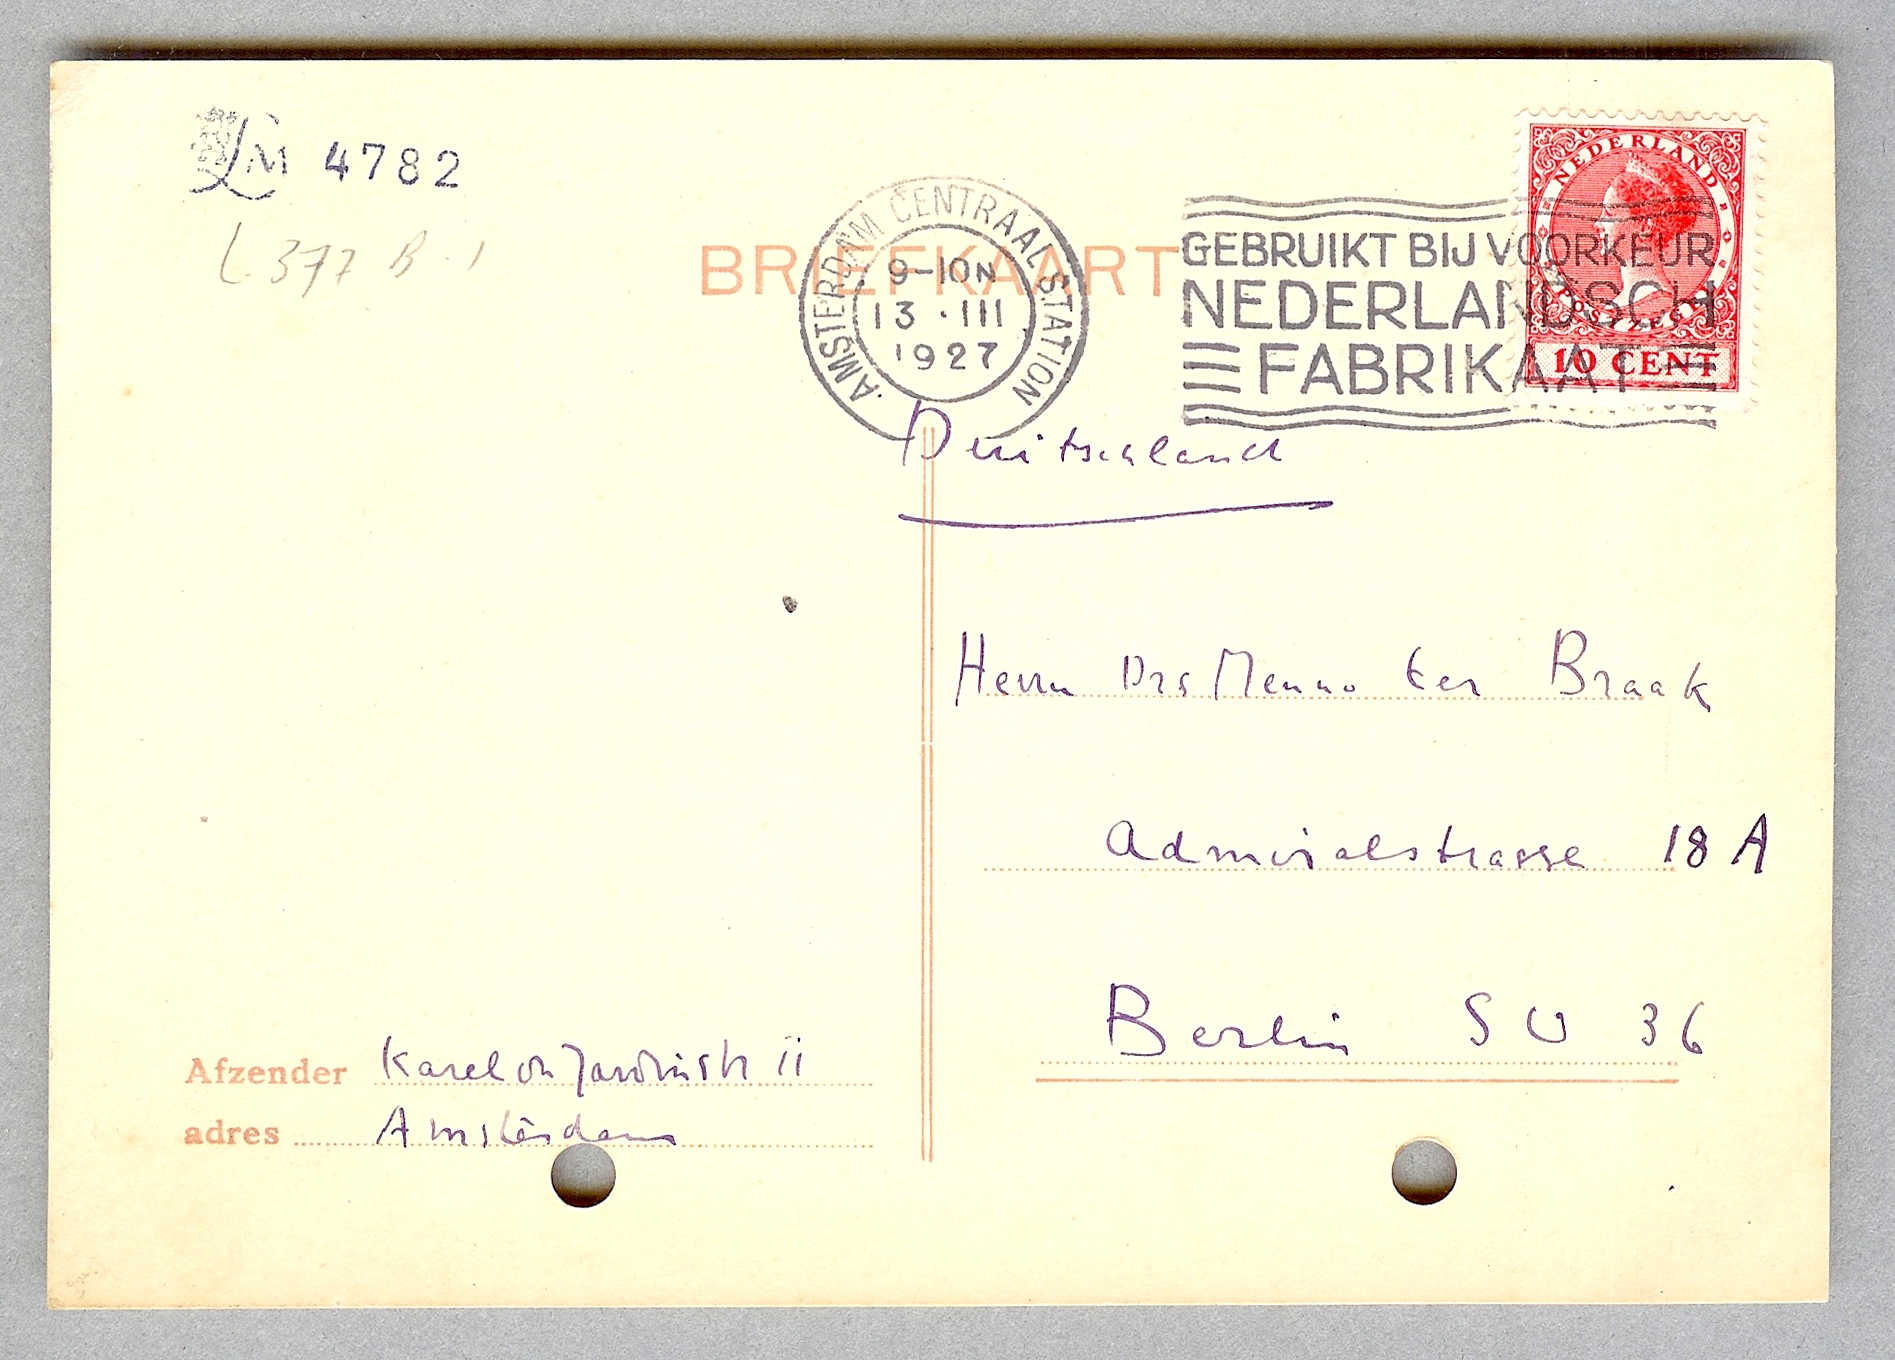 LM 4782
L 377 B 1
BRIEFKAART
AMSTERDAM CENTRAAL STATION
9-10N
13 · III
1927
GEBRUIKT BIJ VOORKEUR
NEDERLANDSCH
FABRIKAAT
NEDERLAND
POSTZEGEL
10 CENT
Duitschland
Herrn Drs Menno ter Braak
Admiralstrasse 18 A
Berlin SW 36
Afzender Karel du Jardinstr 11
adres Amsterdam